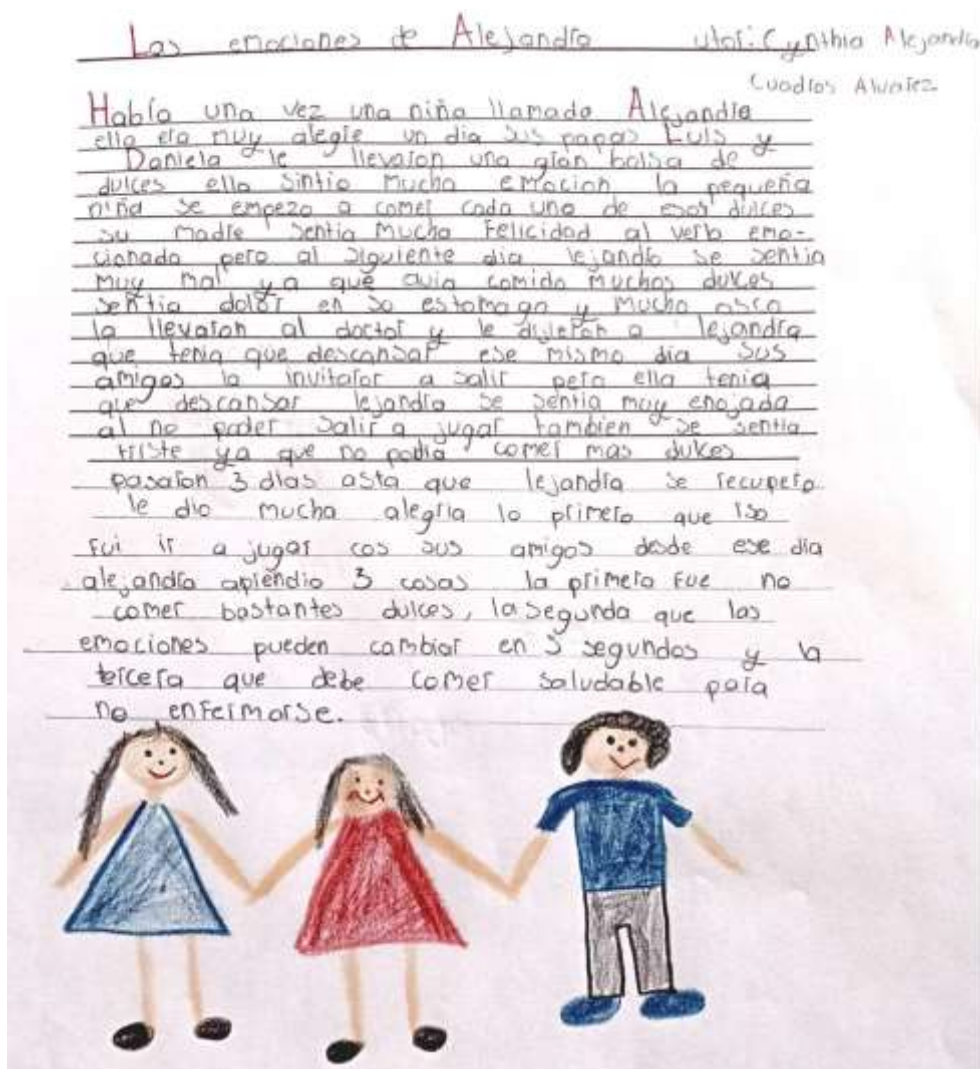 Las emociones de Alejandra utor: Cynthia Alejandra
Cuadros Alvarez
Había una vez una niña llamada Alejandra
ella era muy alegre un dia sus papas Luis y
Daniela le llevaron una gran bolsa de
dulces ella sintio mucha emocion la pequeña
niña se empezo a comer cada uno de esos dulces
su madre sentia mucha felicidad al verla emo-
cionada pero al siguiente dia lejandra se sentia
muy mal ya que avia comido muchos dulces
sentia dolor en so estomago y mucho asco
la llevaron al doctor y le dijeron a lejandra
que tenia que descansar ese mismo dia sus
amigos la invitaron a salir pero ella tenia
que descansar lejandra se sentia muy enojada
al no poder salir a jugar tambien se sentia
triste ya que no podia comer mas dulces
pasaron 3 dias asta que lejandra se recupero
le dio mucha alegria lo primero que iso
fui ir a jugar cos sus amigos desde ese dia
alejandra aprendio 3 cosas la primera fue no
comer bastantes dulces, la segunda que las
emociones pueden cambiar en 5 segundos y la
tercera que debe comer saludable para
no enfermarse.